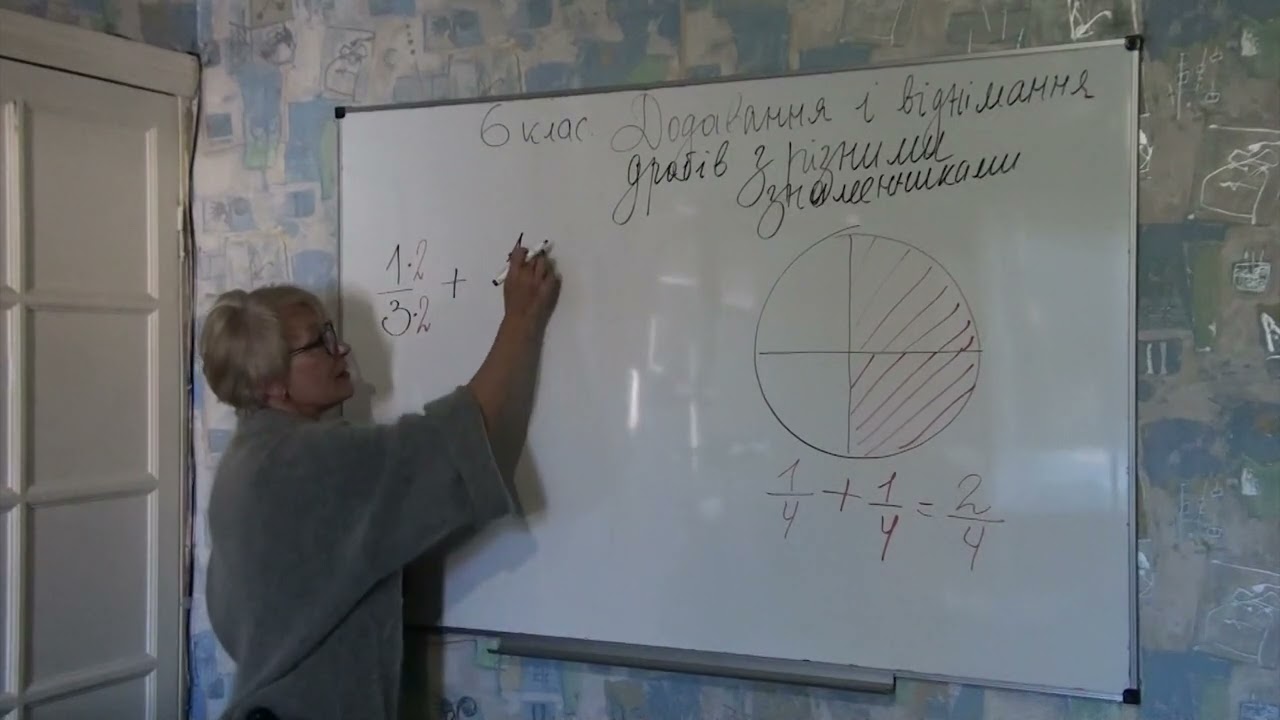 6 клас. Додавання і віднімання
дробів з різними
знаменниками
1·2
3·2
+
1/4 + 1/4 = 2/4